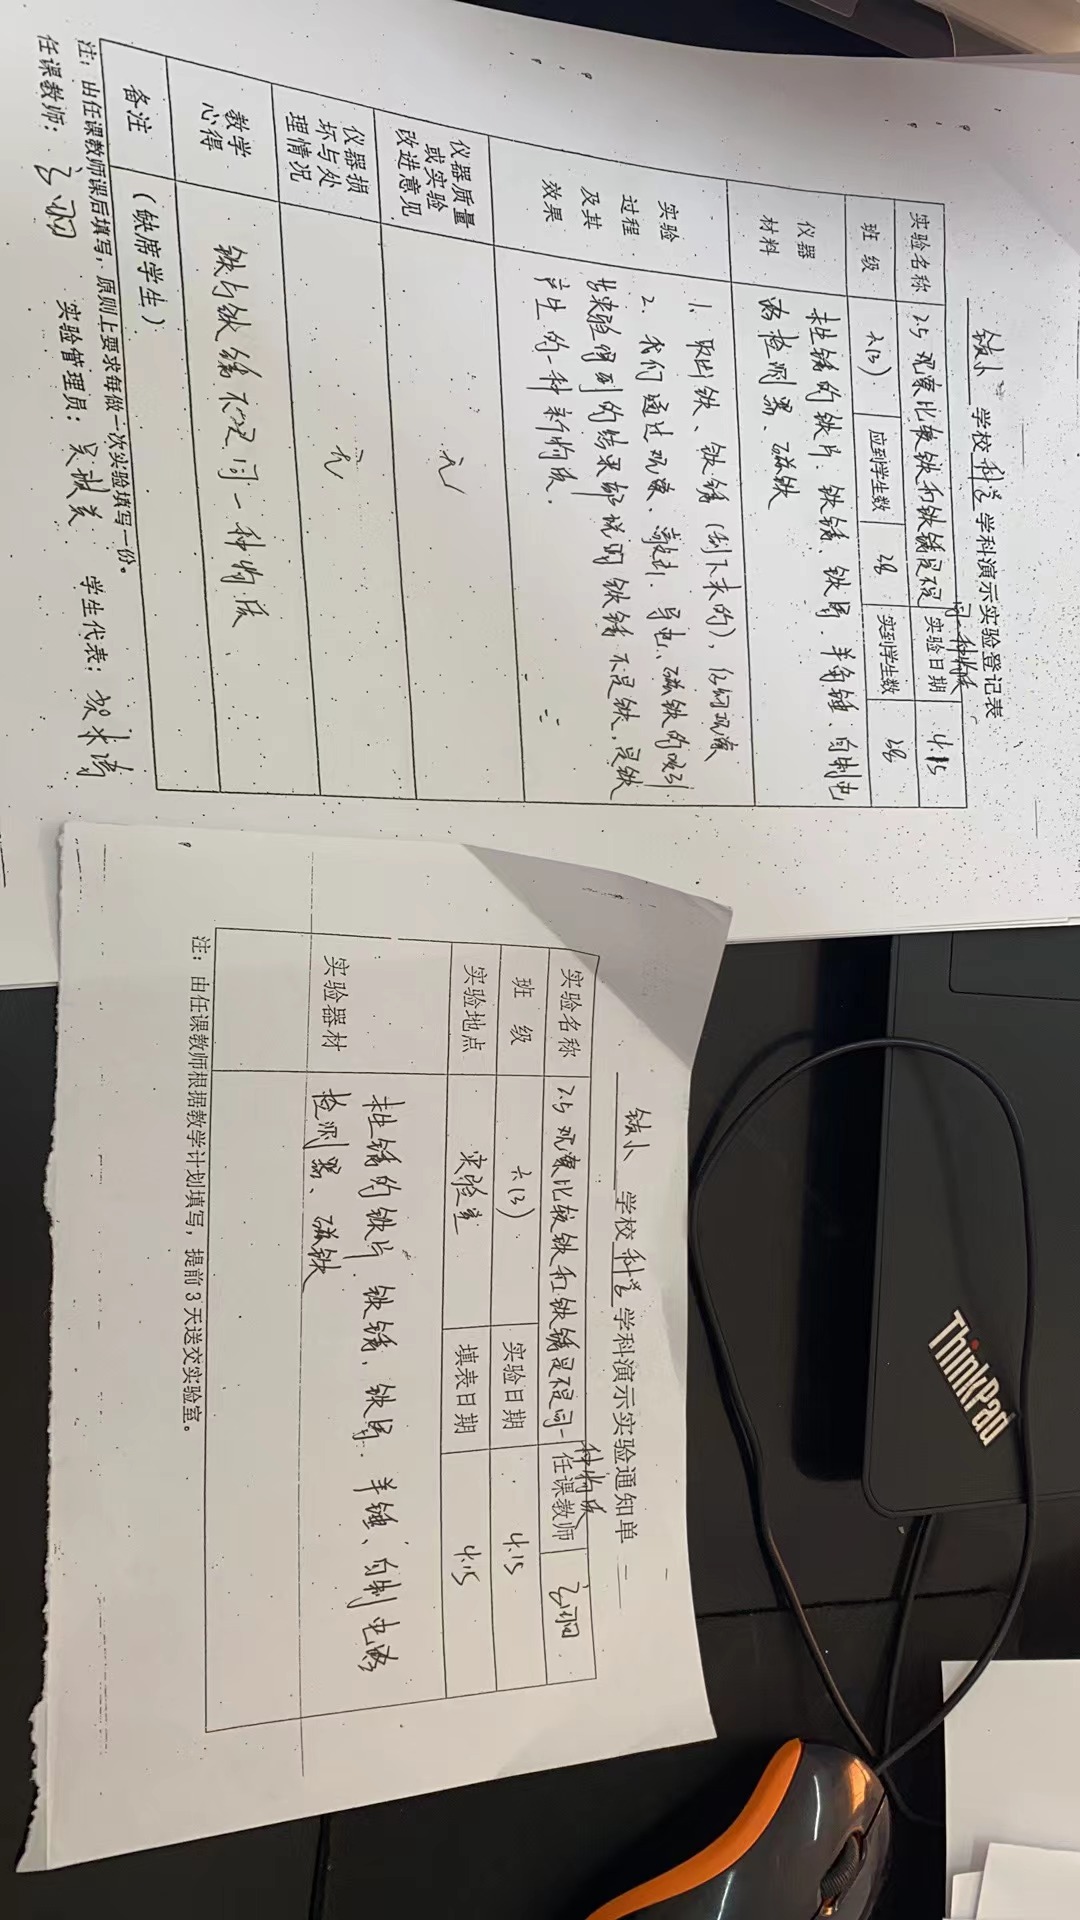 钛小 学校 科学 学科演示实验登记表
实验名称 2.5 观察比较铁和铁锈是不是同一种物质 实验日期 4.15
班 级 六(3) 应到学生数 28 实到学生数 28
仪器材料 生锈的铁片、铁锈、铁钉、羊角锤、自制电
路检测器、磁铁
实验过程及其效果 1、取出铁、铁锈(刮下来的),仔细观察
2、我们通过观察、敲击、导电、磁铁的吸引
等实验得到的结果都说明铁锈不是铁,是铁
产生的一种新物质。
仪器质量或实验改进意见 无
仪器损坏与处理情况 无
教学心得 铁与铁锈不是同一种物质
备注 (缺席学生)
注:由任课教师课后填写,原则上要求每做一次实验填写一份。
任课教师: 实验管理员: 学生代表:
钛小 学校 科学 学科演示实验通知单
实验名称 2.5 观察比较铁和铁锈是不是同一种物质 任课教师
班 级 六(3) 实验日期 4.15
实验地点 实验室 填表日期 4.15
实验器材 生锈的铁片、铁锈、铁钉、羊角锤、自制电路
检测器、磁铁
注:由任课教师根据教学计划填写,提前3天送交实验室。
ThinkPad